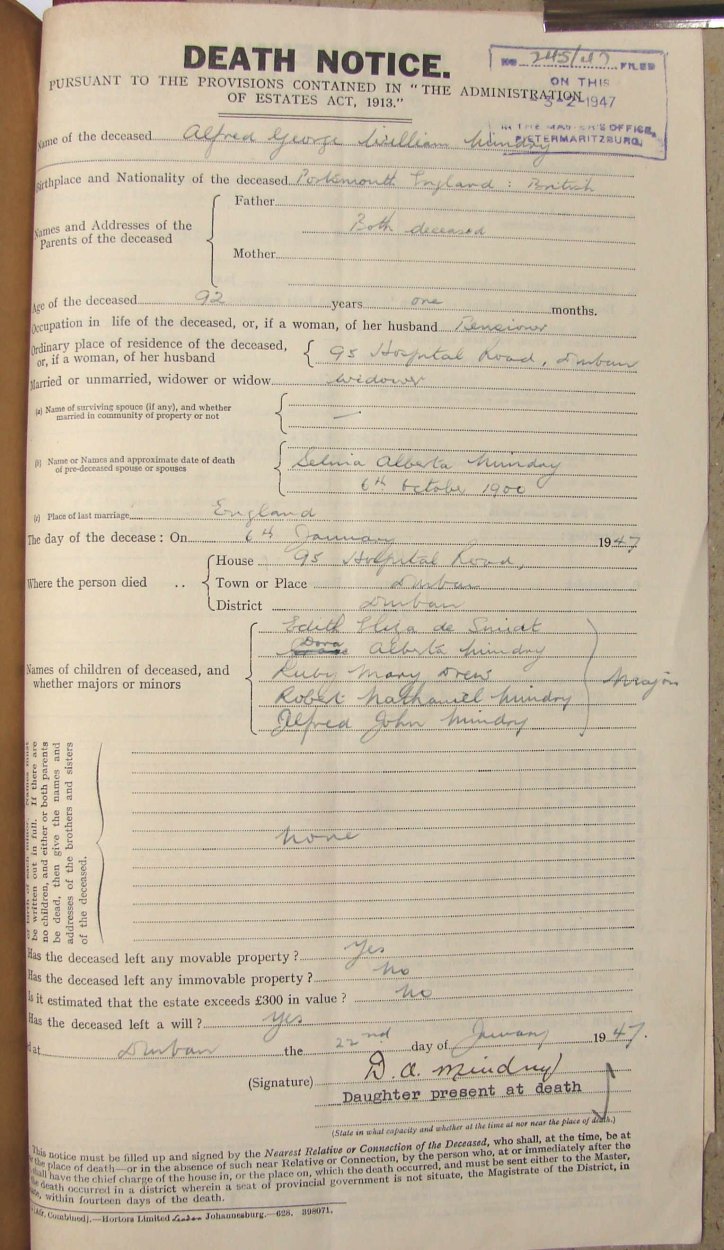 DEATH NOTICE.
No. 245/47 FILED
ON THIS
-3-2-1947
IN THE MASTER'S OFFICE,
PIETERMARITZBURG.
PURSUANT TO THE PROVISIONS CONTAINED IN "THE ADMINISTRATION
OF ESTATES ACT, 1913."
Name of the deceased Alfred George William Mindry
Birthplace and Nationality of the deceased Portsmouth England : British
Names and Addresses of the Parents of the deceased
Father
Both deceased
Mother
Age of the deceased 92 years one months.
Occupation in life of the deceased, or, if a woman, of her husband Pensioner
Ordinary place of residence of the deceased,
or, if a woman, of her husband 95 Hospital Road, Durban
Married or unmarried, widower or widow widower
(a) Name of surviving spouse (if any), and whether
married in community of property or not —
(b) Name or Names and approximate date of death
of pre-deceased spouse or spouses
Selina Alberta Mindry
6th October 1900
(c) Place of last marriage England
The day of the decease: On 6th January 1947
Where the person died ..
House 95 Hospital Road,
Town or Place Durban
District Durban
Names of children of deceased, and
whether majors or minors
Edith Eliza de Smidt
Dora Alberta Mindry
Ruby Mary Drew
Robert Nathaniel Mindry
Alfred John Mindry
Majors
be written out in full. If there are
no children, and either or both parents
be dead, then give the names and
addresses of the brothers and sisters
of the deceased.
None
Has the deceased left any movable property? Yes
Has the deceased left any immovable property? No
Is it estimated that the estate exceeds £300 in value? No
Has the deceased left a will? Yes
d at Durban the 22nd day of January 1947.
(Signature) D. A. Mindry
Daughter present at death
(State in what capacity and whether at the time at nor near the place of death.)
This notice must be filled up and signed by the Nearest Relative or Connection of the Deceased, who shall, at the time, be at
the place of death—or in the absence of such near Relative or Connection, by the person who, at or immediately after the
shall have the chief charge of the house in, or the place on, which the death occurred, and must be sent either to the Master,
death occurred in a district wherein a seat of provincial government is not situate, the Magistrate of the District, in
within fourteen days of the death.
Combined].—Hortors Limited Johannesburg.—628. 398071.